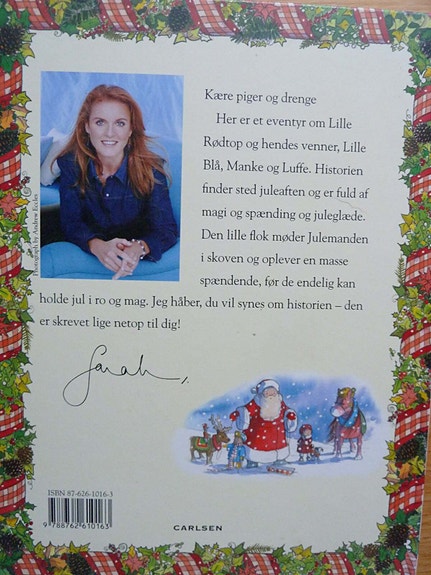 Kære piger og drenge
Her er et eventyr om Lille
Rødtop og hendes venner, Lille
Blå, Manke og Luffe. Historien
finder sted juleaften og er fuld af
magi og spænding og juleglæde.
Den lille flok møder Julemanden
i skoven og oplever en masse
spændende, før de endelig kan
holde jul i ro og mag. Jeg håber, du vil synes om historien – den
er skrevet lige netop til dig!
Photograph by Andrew Eccles
Sarah,
ISBN 87-626-1016-3
9 788762 610163
CARLSEN